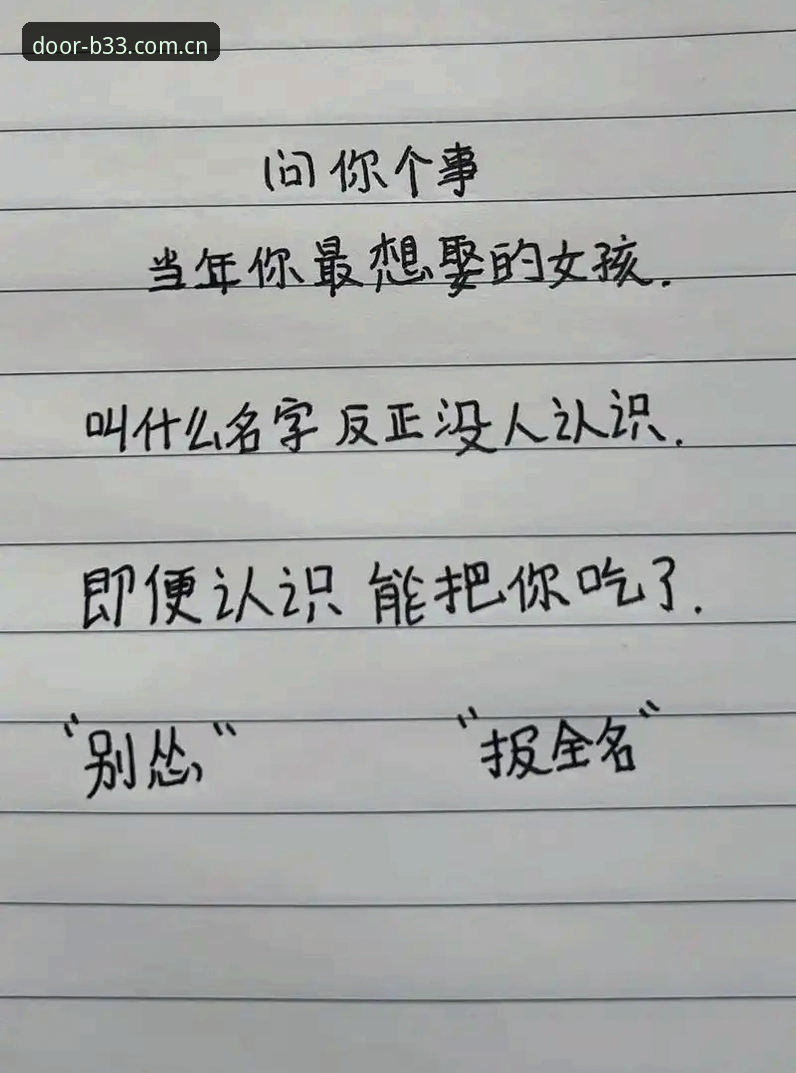 door-b33.com.cn
问你个事
当年你最想娶的女孩.
叫什么名字 反正没人认识.
即便认识 能把你吃了.
"别怂" "报全名"